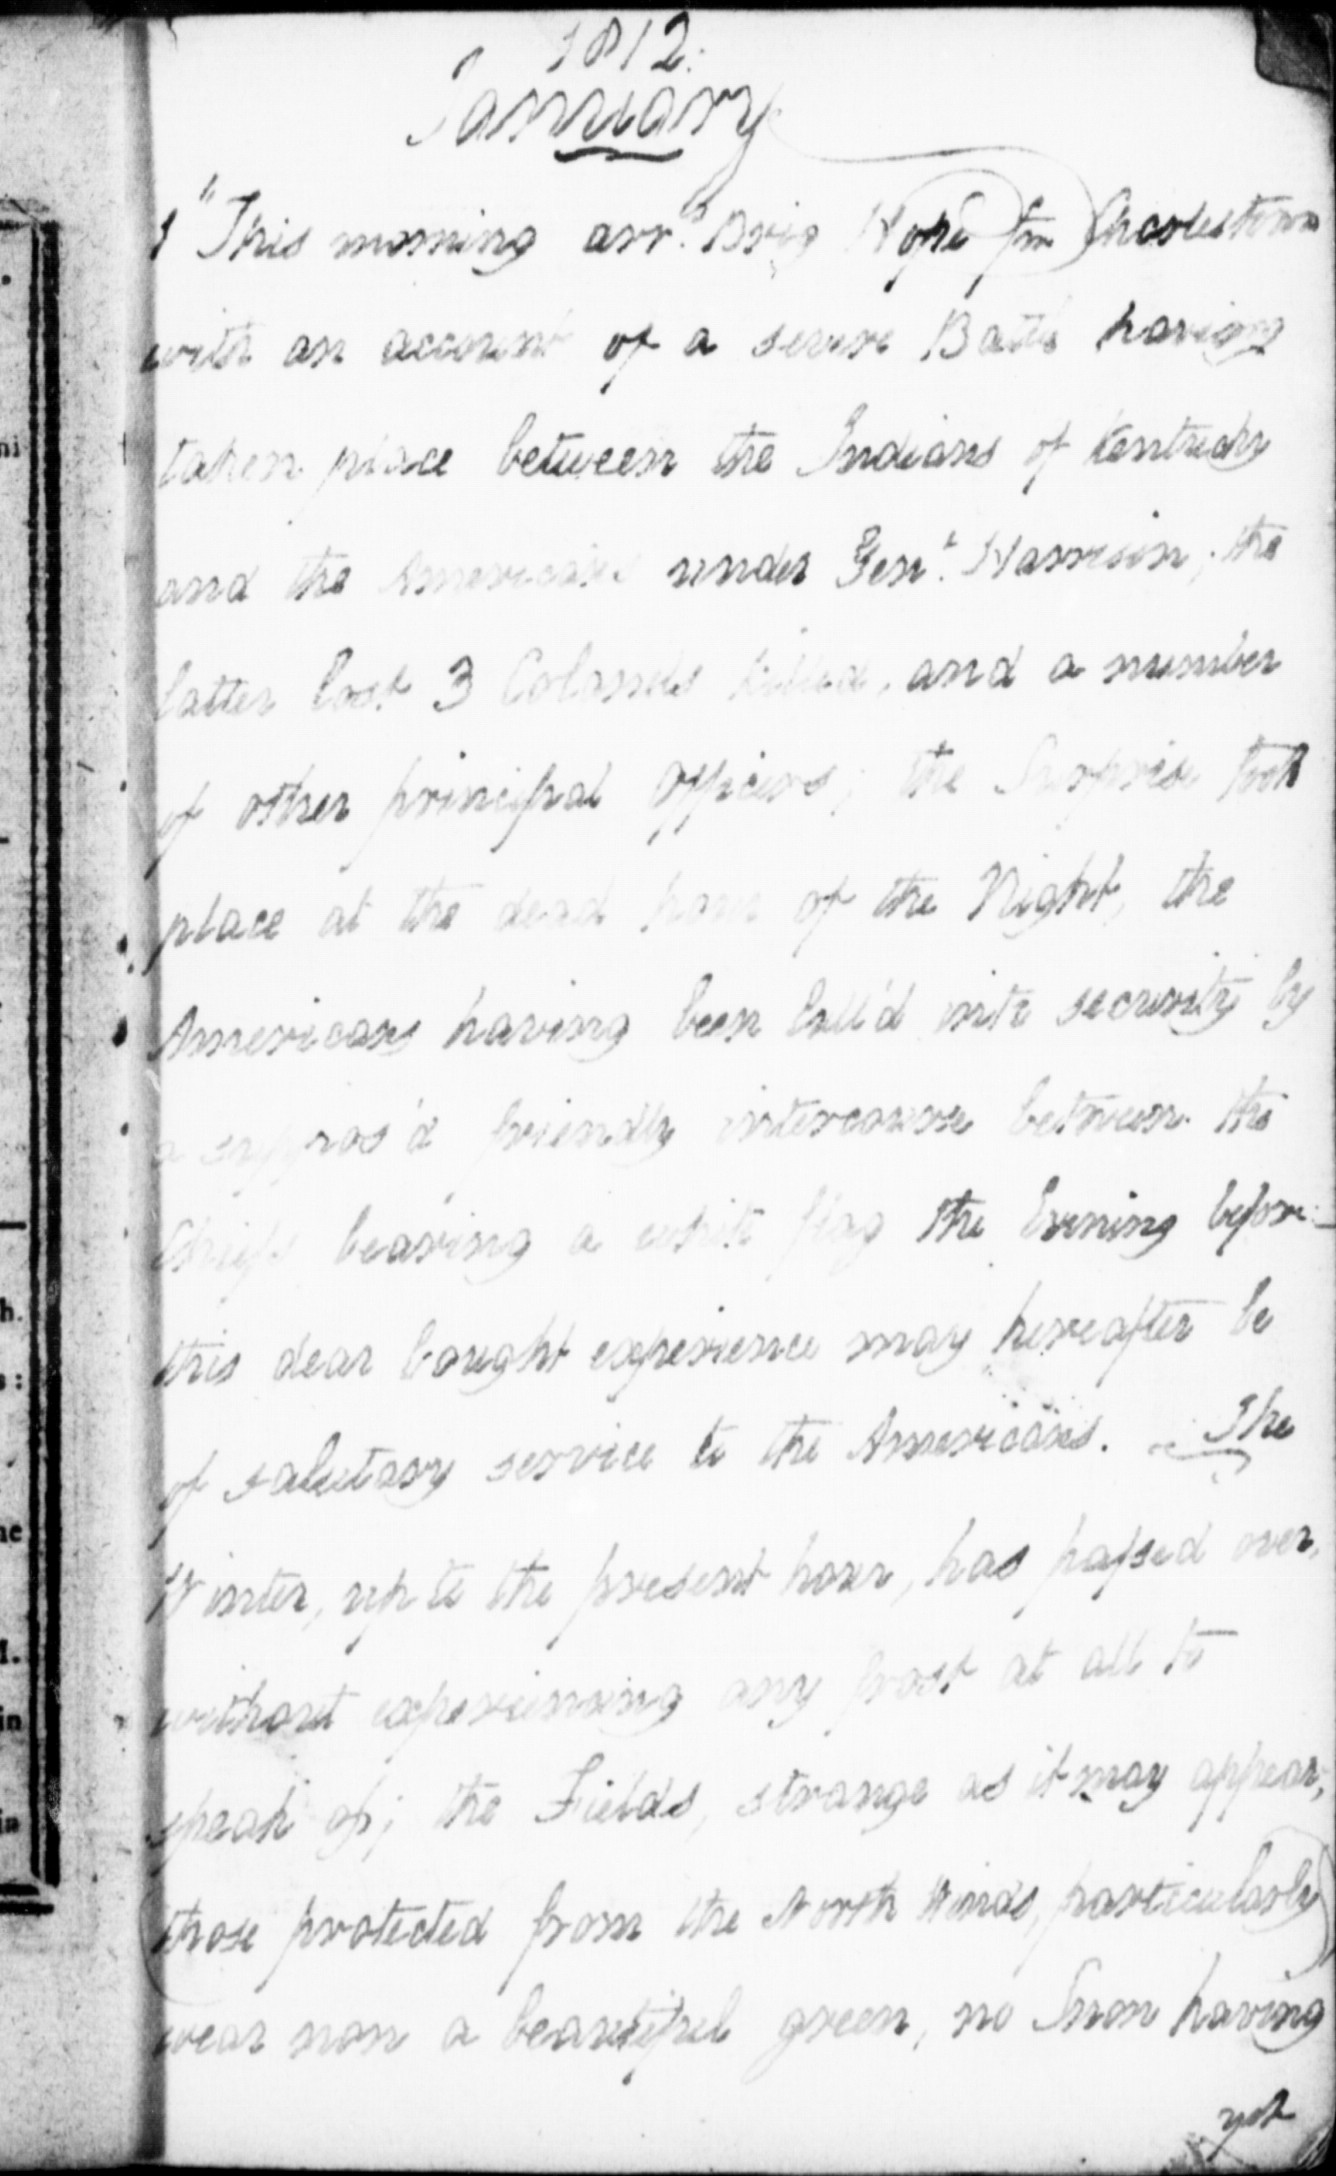 1812.
January
1 " This morning arr.d Brig Hope fm Charlestown
with an account of a severe Battle having
taken place between the Indians of Kentucky
and the Americans under Gen.l Harrison; the
latter lost 3 Colonels killed, and a number
of other principal Officers; the Surprise took
place at the dead hour of the Night, the
Americans having been lull'd into security by
a suppos'd friendly intercourse between the
Chiefs bearing a white flag the Evening before
this dear bought experience may hereafter be
of salutary service to the Americans. The
Winter, up to the present hour, has passed over,
without experiencing any frost at all to
speak of; the Fields, strange as it may appear,
(those protected from the North Winds, particularly)
wear now a beautiful green, no Snow having
yet